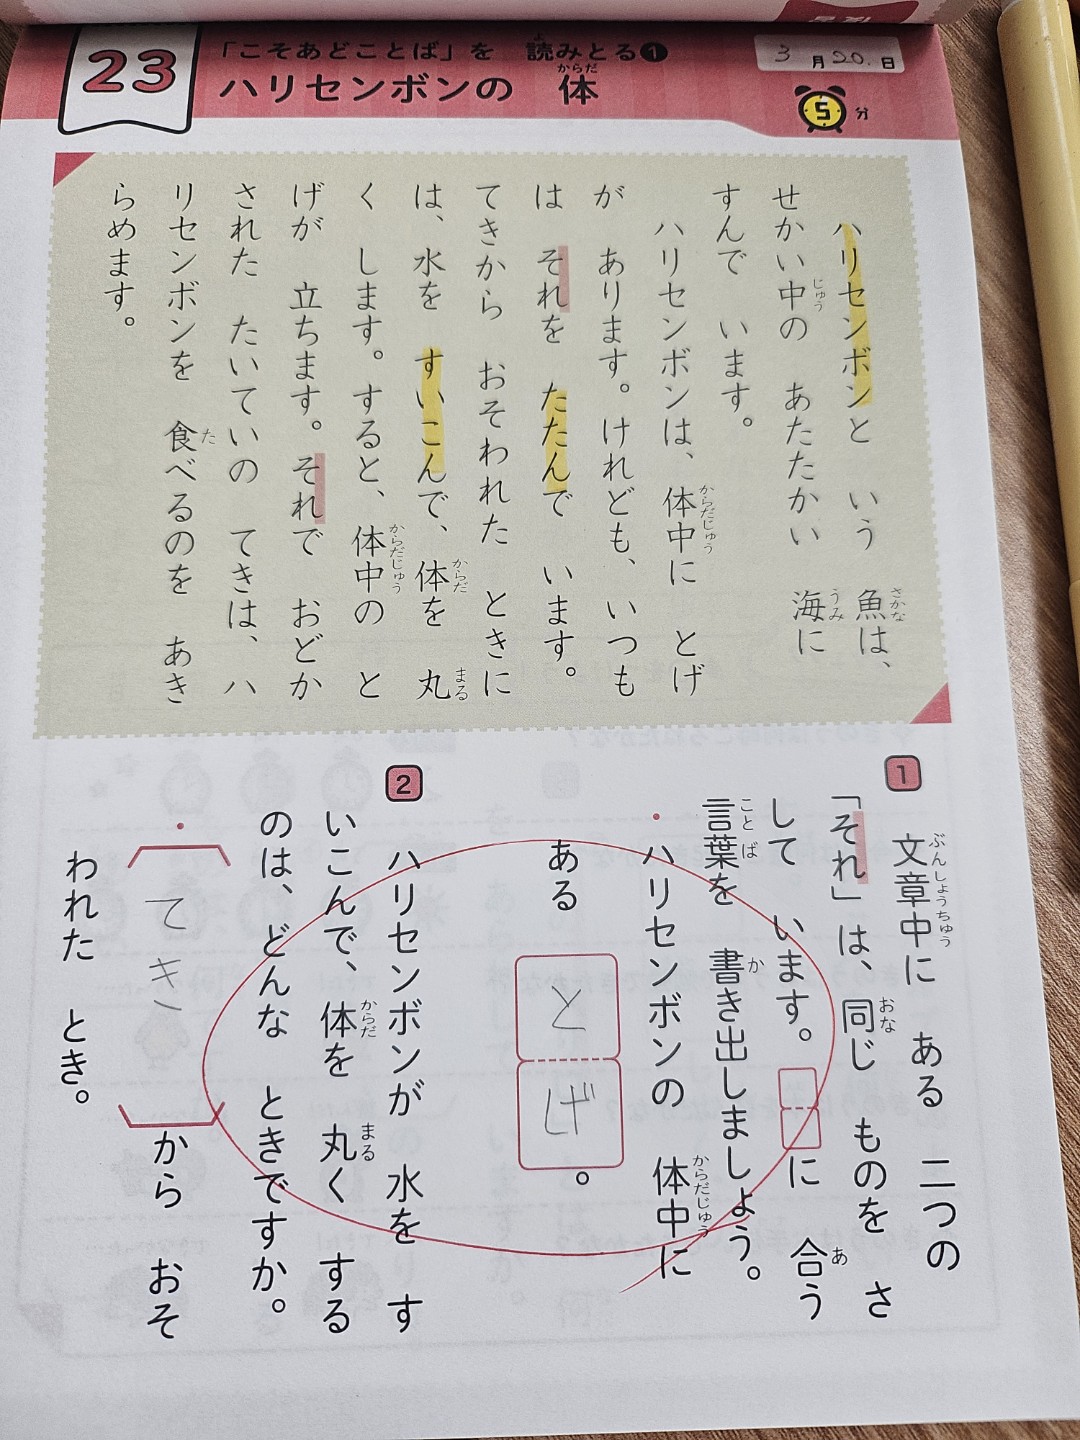 23
「こそあどことば」を 読みとる❶
ハリセンボンの 体
3月20.日
5分
ハリセンボンと いう 魚は、
せかい中の あたたかい 海に
すんで います。
ハリセンボンは、体中に とげ
が あります。けれども、いつも
は それを たたんで います。
てきから おそわれた ときに
は、水を すいこんで、体を 丸
く します。すると、体中の と
げが 立ちます。それで おどか
された たいていの てきは、ハ
リセンボンを 食べるのを あき
らめます。
1
文章中に ある 二つの
「それ」は、同じ ものを さ
して います。□に 合う
言葉を 書き出しましょう。
・ハリセンボンの 体中に
ある とげ。
2
ハリセンボンが 水を す
いこんで、体を 丸く する
のは、どんな ときですか。
・〔てき〕から おそ
われた とき。